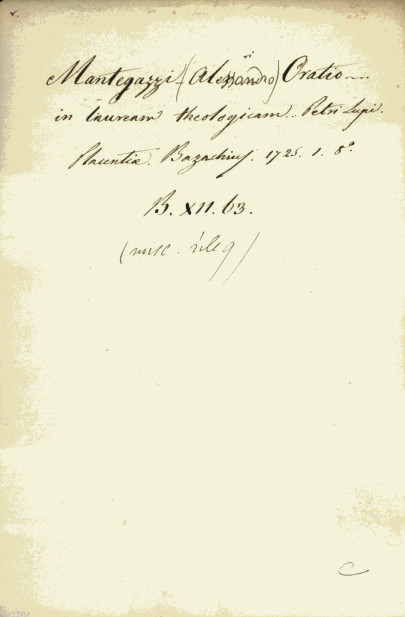 Mantegazzi (Alessandro) Oratio....
in lauream theologicam.. Petri Lupi.
Placentiæ. Bazachius. 1725. 1. 8°.
B. XII. 63.
(misc. rileg)
C